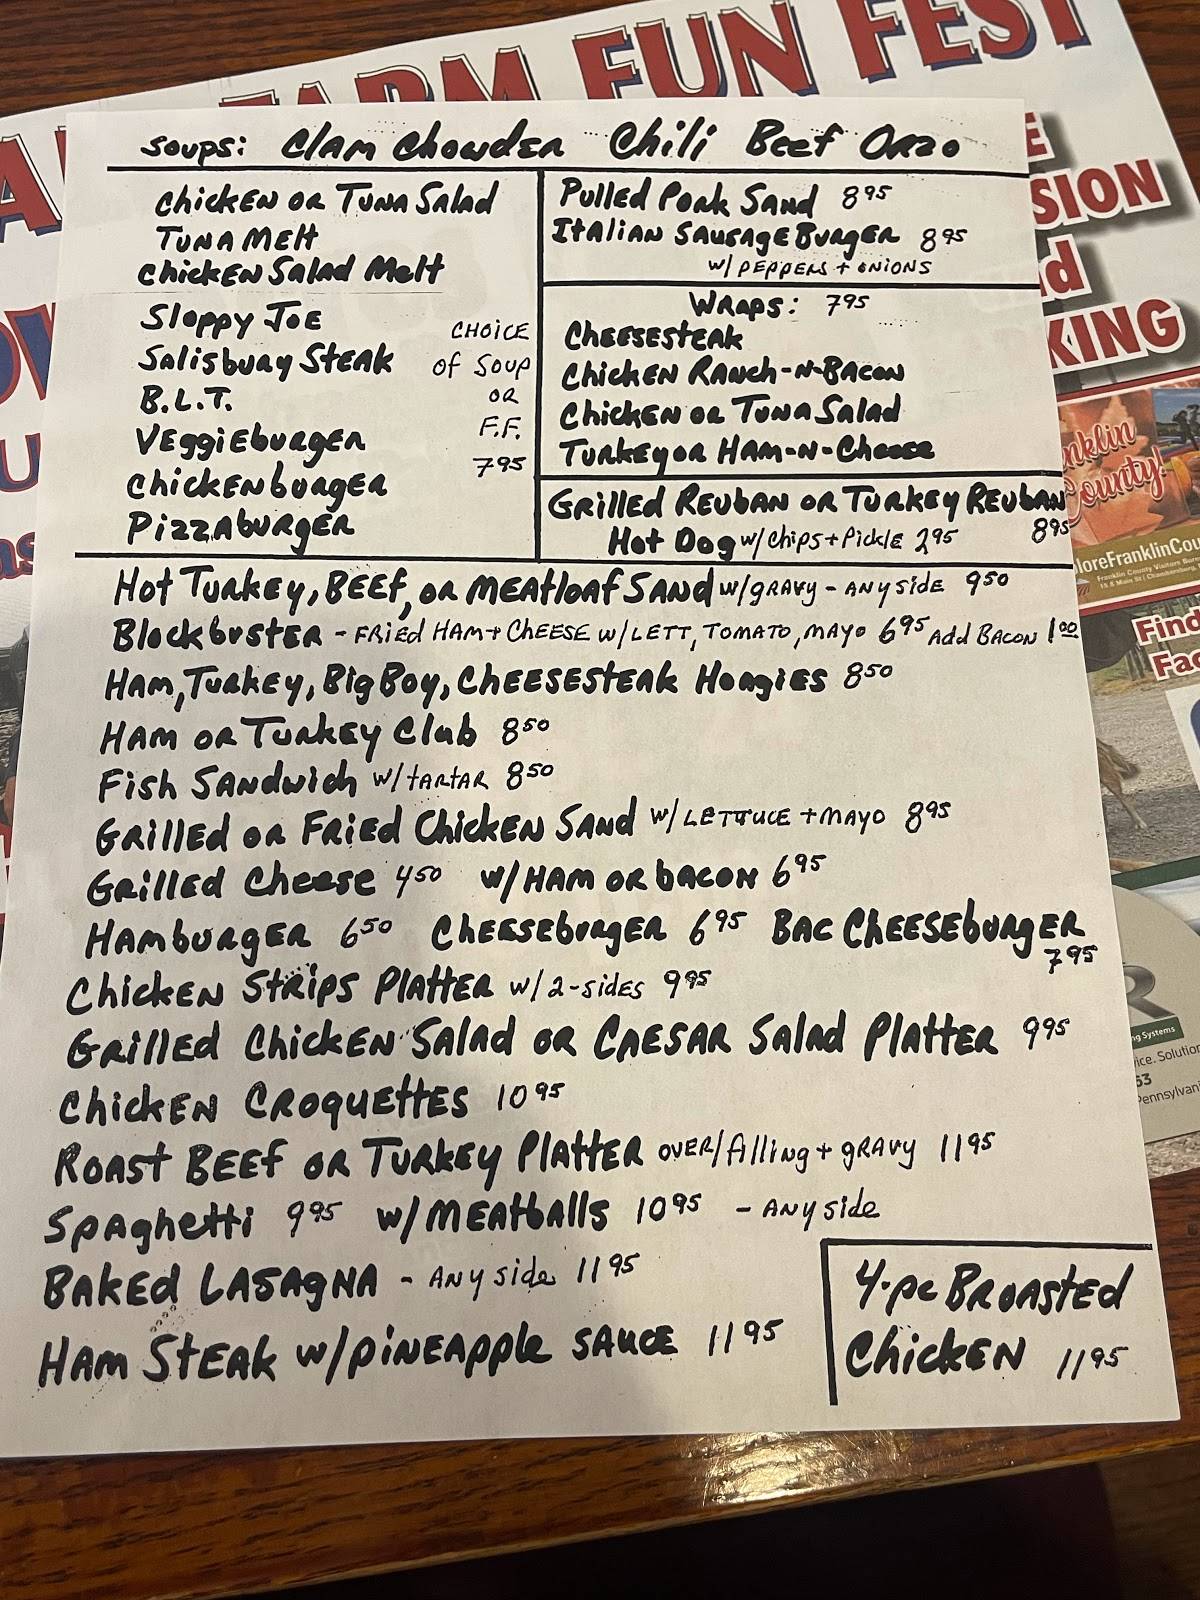 FARM FUN FEST
Soups: Clam Chowder Chili Beef Orzo
Chicken or Tuna Salad
Tuna Melt
Chicken Salad Melt
Sloppy Joe
Salisbury Steak
B.L.T.
Veggieburger
Chickenburger
Pizzaburger
CHOICE
of Soup
OR
F.F.
7.95
Pulled Pork Sand 8.95
Italian Sausage Burger 8.95
w/ PEPPERS + ONIONS
Wraps: 7.95
Cheesesteak
Chicken Ranch-N-Bacon
Chicken or Tuna Salad
Turkey or Ham-N-Cheese
Grilled Reuban or Turkey Reuban
8.95
Hot Dog w/chips + Pickle 2.95
Hot Turkey, Beef, or Meatloaf Sand w/gravy - Any side 9.50
Blockbuster - Fried Ham + Cheese w/Lett, Tomato, Mayo 6.95 Add Bacon 1.00
Ham, Turkey, Big Boy, Cheesesteak Hoagies 8.50
Ham or Turkey Club 8.50
Fish Sandwich w/tartar 8.50
Grilled or Fried Chicken Sand w/ Lettuce + Mayo 8.95
Grilled Cheese 4.50 w/Ham or bacon 6.95
Hamburger 6.50 Cheeseburger 6.95 Bac Cheeseburger
7.95
Chicken Strips Platter w/2-sides 9.95
Grilled Chicken Salad or Caesar Salad Platter 9.95
Chicken Croquettes 10.95
Roast Beef or Turkey Platter over/filling + gravy 11.95
Spaghetti 9.95 w/Meatballs 10.95 - Any side
Baked Lasagna - Any side 11.95
Ham Steak w/pineapple sauce 11.95
4-pc Broasted
Chicken 11.95
SION
KING
County!
Franklin County Visitors Bureau
Find
ng Systems
Pennsylvani